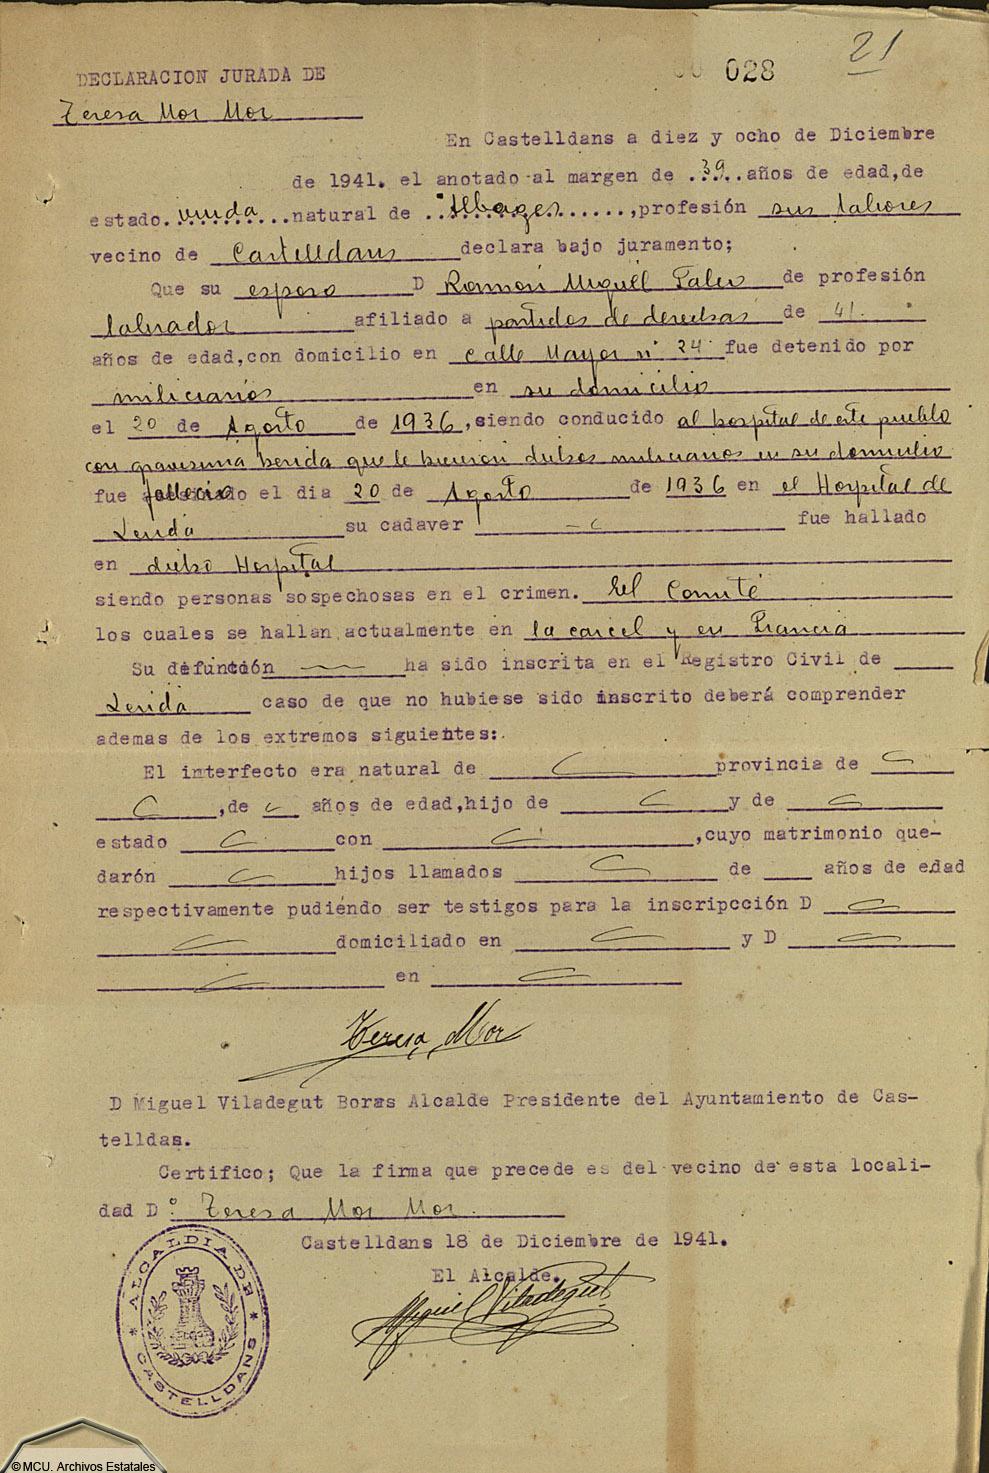 21
00 028
DECLARACION JURADA DE
Teresa Mor Mor
En Castelldans a diez y ocho de Diciembre
de 1941. el anotado al margen de ..39.. años de edad,de
estado.viuda...natural de ..Albages......,profesión sus labores
vecino de Castelldans declara bajo juramento;
Que su esposo D Ramón Miguél Paleu de profesión
labrador afiliado a partidos de derechas de 41.
años de edad,con domicilio en calle Mayor nº 24 fue detenido por
milicianos en su domicilio
el 20 de Agosto de 1936,siendo conducido al hospital de este pueblo
con gravisima herida que le hicieron dichos milicianos en su domicilio
fue fallecio el dia 20 de Agosto de 1936 en el Hospital de
Lerida su cadaver fue hallado
en dicho Hospital
siendo personas sospechosas en el crimen. El Comité
los cuales se hallan actualmente en la carcel y en Francia
Su defunción ha sido inscrita en el Registro Civil de
Lerida caso de que no hubiese sido inscrito deberá comprender
ademas de los extremos siguientes:.
El interfecto era natural de provincia de
,de años de edad,hijo de y de
estado con ,cuyo matrimonio que-
darón hijos llamados de años de edad
respectivamente pudiéndo ser testigos para la inscripcción D
domiciliado en y D
en
Teresa Mor
D Miguel Viladegut Boras Alcalde Presidente del Ayuntamiento de Cas-
telldas.
Certifico; Que la firma que precede es del vecino de esta locali-
dad Dº: Teresa Mor Mor.
Castelldans 18 de Diciembre de 1941.
El Alcalde.
Miguel Viladegut
* ALCALDIA DE * CASTELLDANS
© MCU. Archivos Estatales